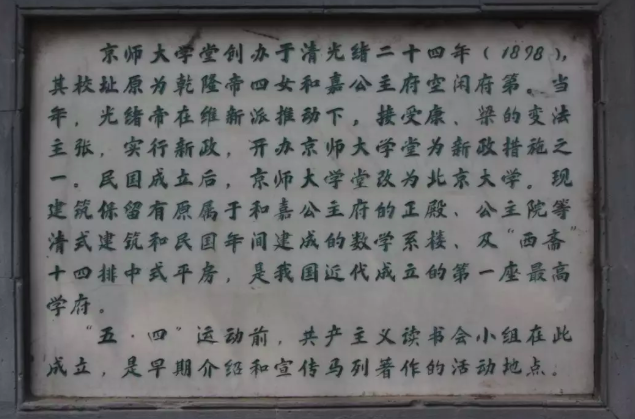 京师大学堂创办于清光绪二十四年(1898),
其校址原为乾隆帝四女和嘉公主府空闲府第。当
年，光绪帝在维新派推动下，接受康、梁的变法
主张，实行新政，开办京师大学堂为新政措施之
一。民国成立后，京师大学堂改为北京大学。现
建筑保留有原属于和嘉公主府的正殿、公主院等
清式建筑和民国年间建成的数学系楼、及“西斋”
十四排中式平房，是我国近代成立的第一座最高
学府。
“五·四”运动前，共产主义读书会小组在此
成立，是早期介绍和宣传马列著作的活动地点.